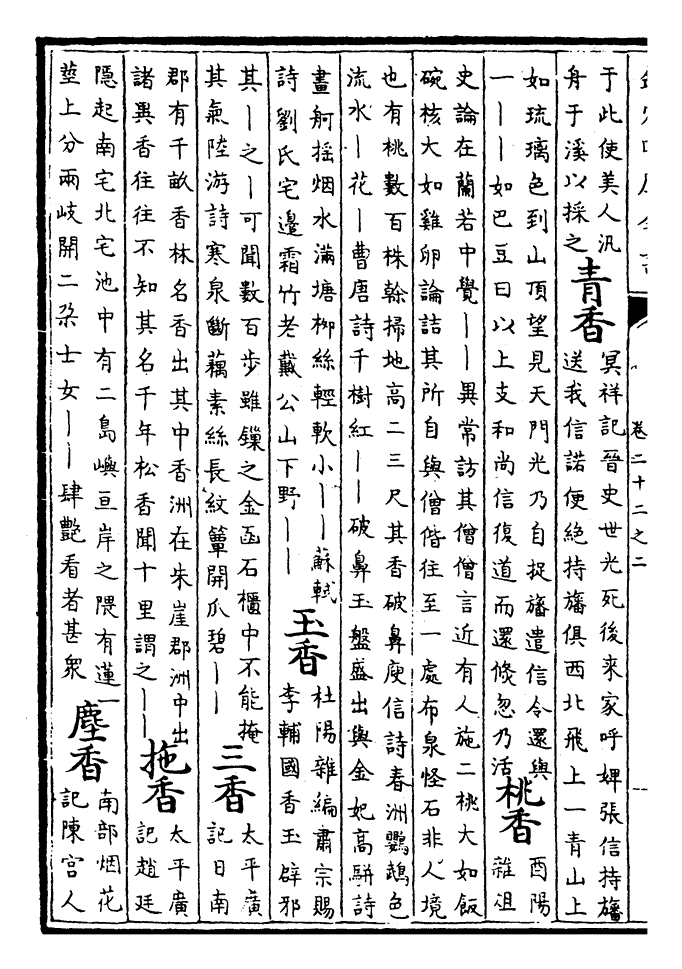 卷二十二之二
于此使美人汎
舟于溪以採之
青香
冥祥記晉史世光死後來家呼婢張信持旛
送我信諾便絶持旛俱西北飛上一青山上
如琉璃色到山頂望見天門光乃自捉旛遣信令還與
一丨丨如巴豆曰以上支和尚信復道而還倐忽乃活
桃香
酉陽
雜俎
史論在蘭若中覺丨丨異常訪其僧僧言近有人施二桃大如飯
碗核大如雞卵論詰其所自與僧偕往至一處布泉怪石非人境
也有桃數百株榦掃地高二三尺其香破鼻庾信詩春洲鸚鵡色
流水丨花丨曹唐詩千樹紅丨丨破鼻玉盤盛出與金妃高駢詩
畫舸搖烟水滿塘柳絲輕軟小丨丨蘇軾
詩劉氏宅邊霜竹老戴公山下野丨丨
玉香
杜陽雜編肅宗賜
李輔國香玉辟邪
其丨之丨可聞數百步雖鏁之金函石櫃中不能掩
其氣陸游詩寒泉斷藕素絲長紋簟開爪碧丨丨
三香
太平廣
記日南
郡有千畝香林名香出其中香洲在朱崖郡洲中出
諸異香往往不知其名千年松香聞十里謂之丨丨
拖香
太平廣
記趙廷
隱起南宅北宅池中有二島嶼亘岸之隈有蓮一
莖上分兩岐開二朶士女丨丨肆艷看者甚衆
塵香
南部烟花
記陳宫人